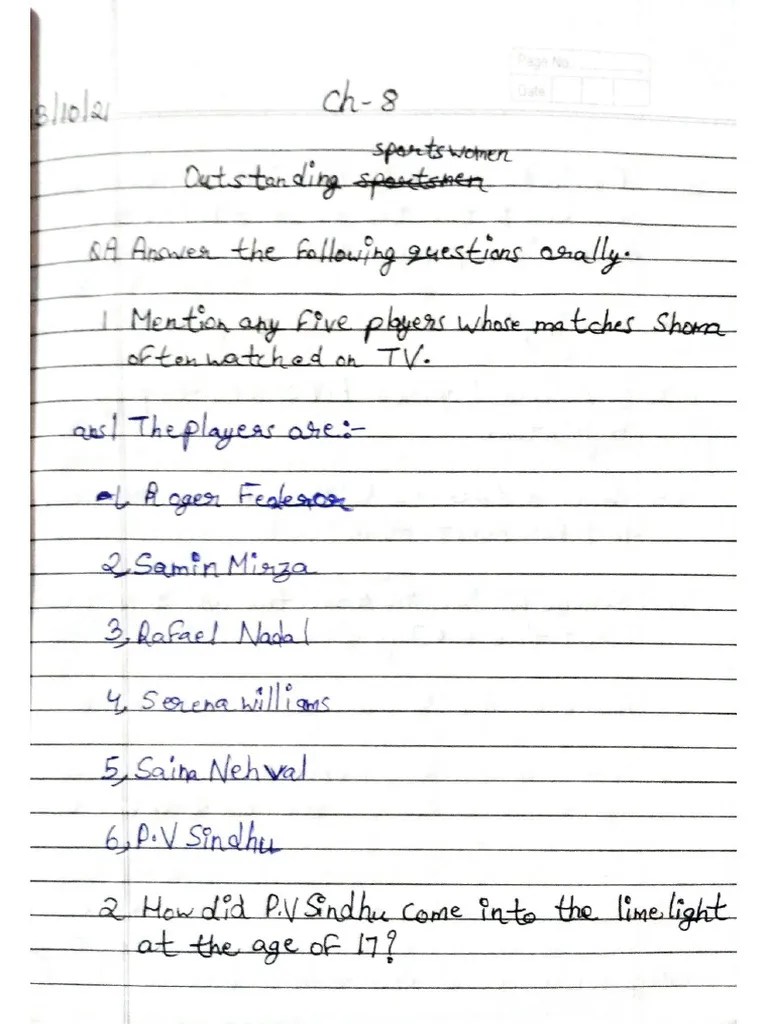 Page No.
Date
3/10/21
Ch-8
sportswomen
Outstanding sportsmen
QA Answer the following questions orally.
1 Mention any five players whose matches Shoma
often watched on TV.
ans1 The players are:-
1, Roger Federor
2, Samin Mirza
3, Rafael Nadal
4, Serena williams
5, Saina Nehwal
6, P.V Sindhu
2 How did P.V Sindhu come into the limelight
at the age of 17?